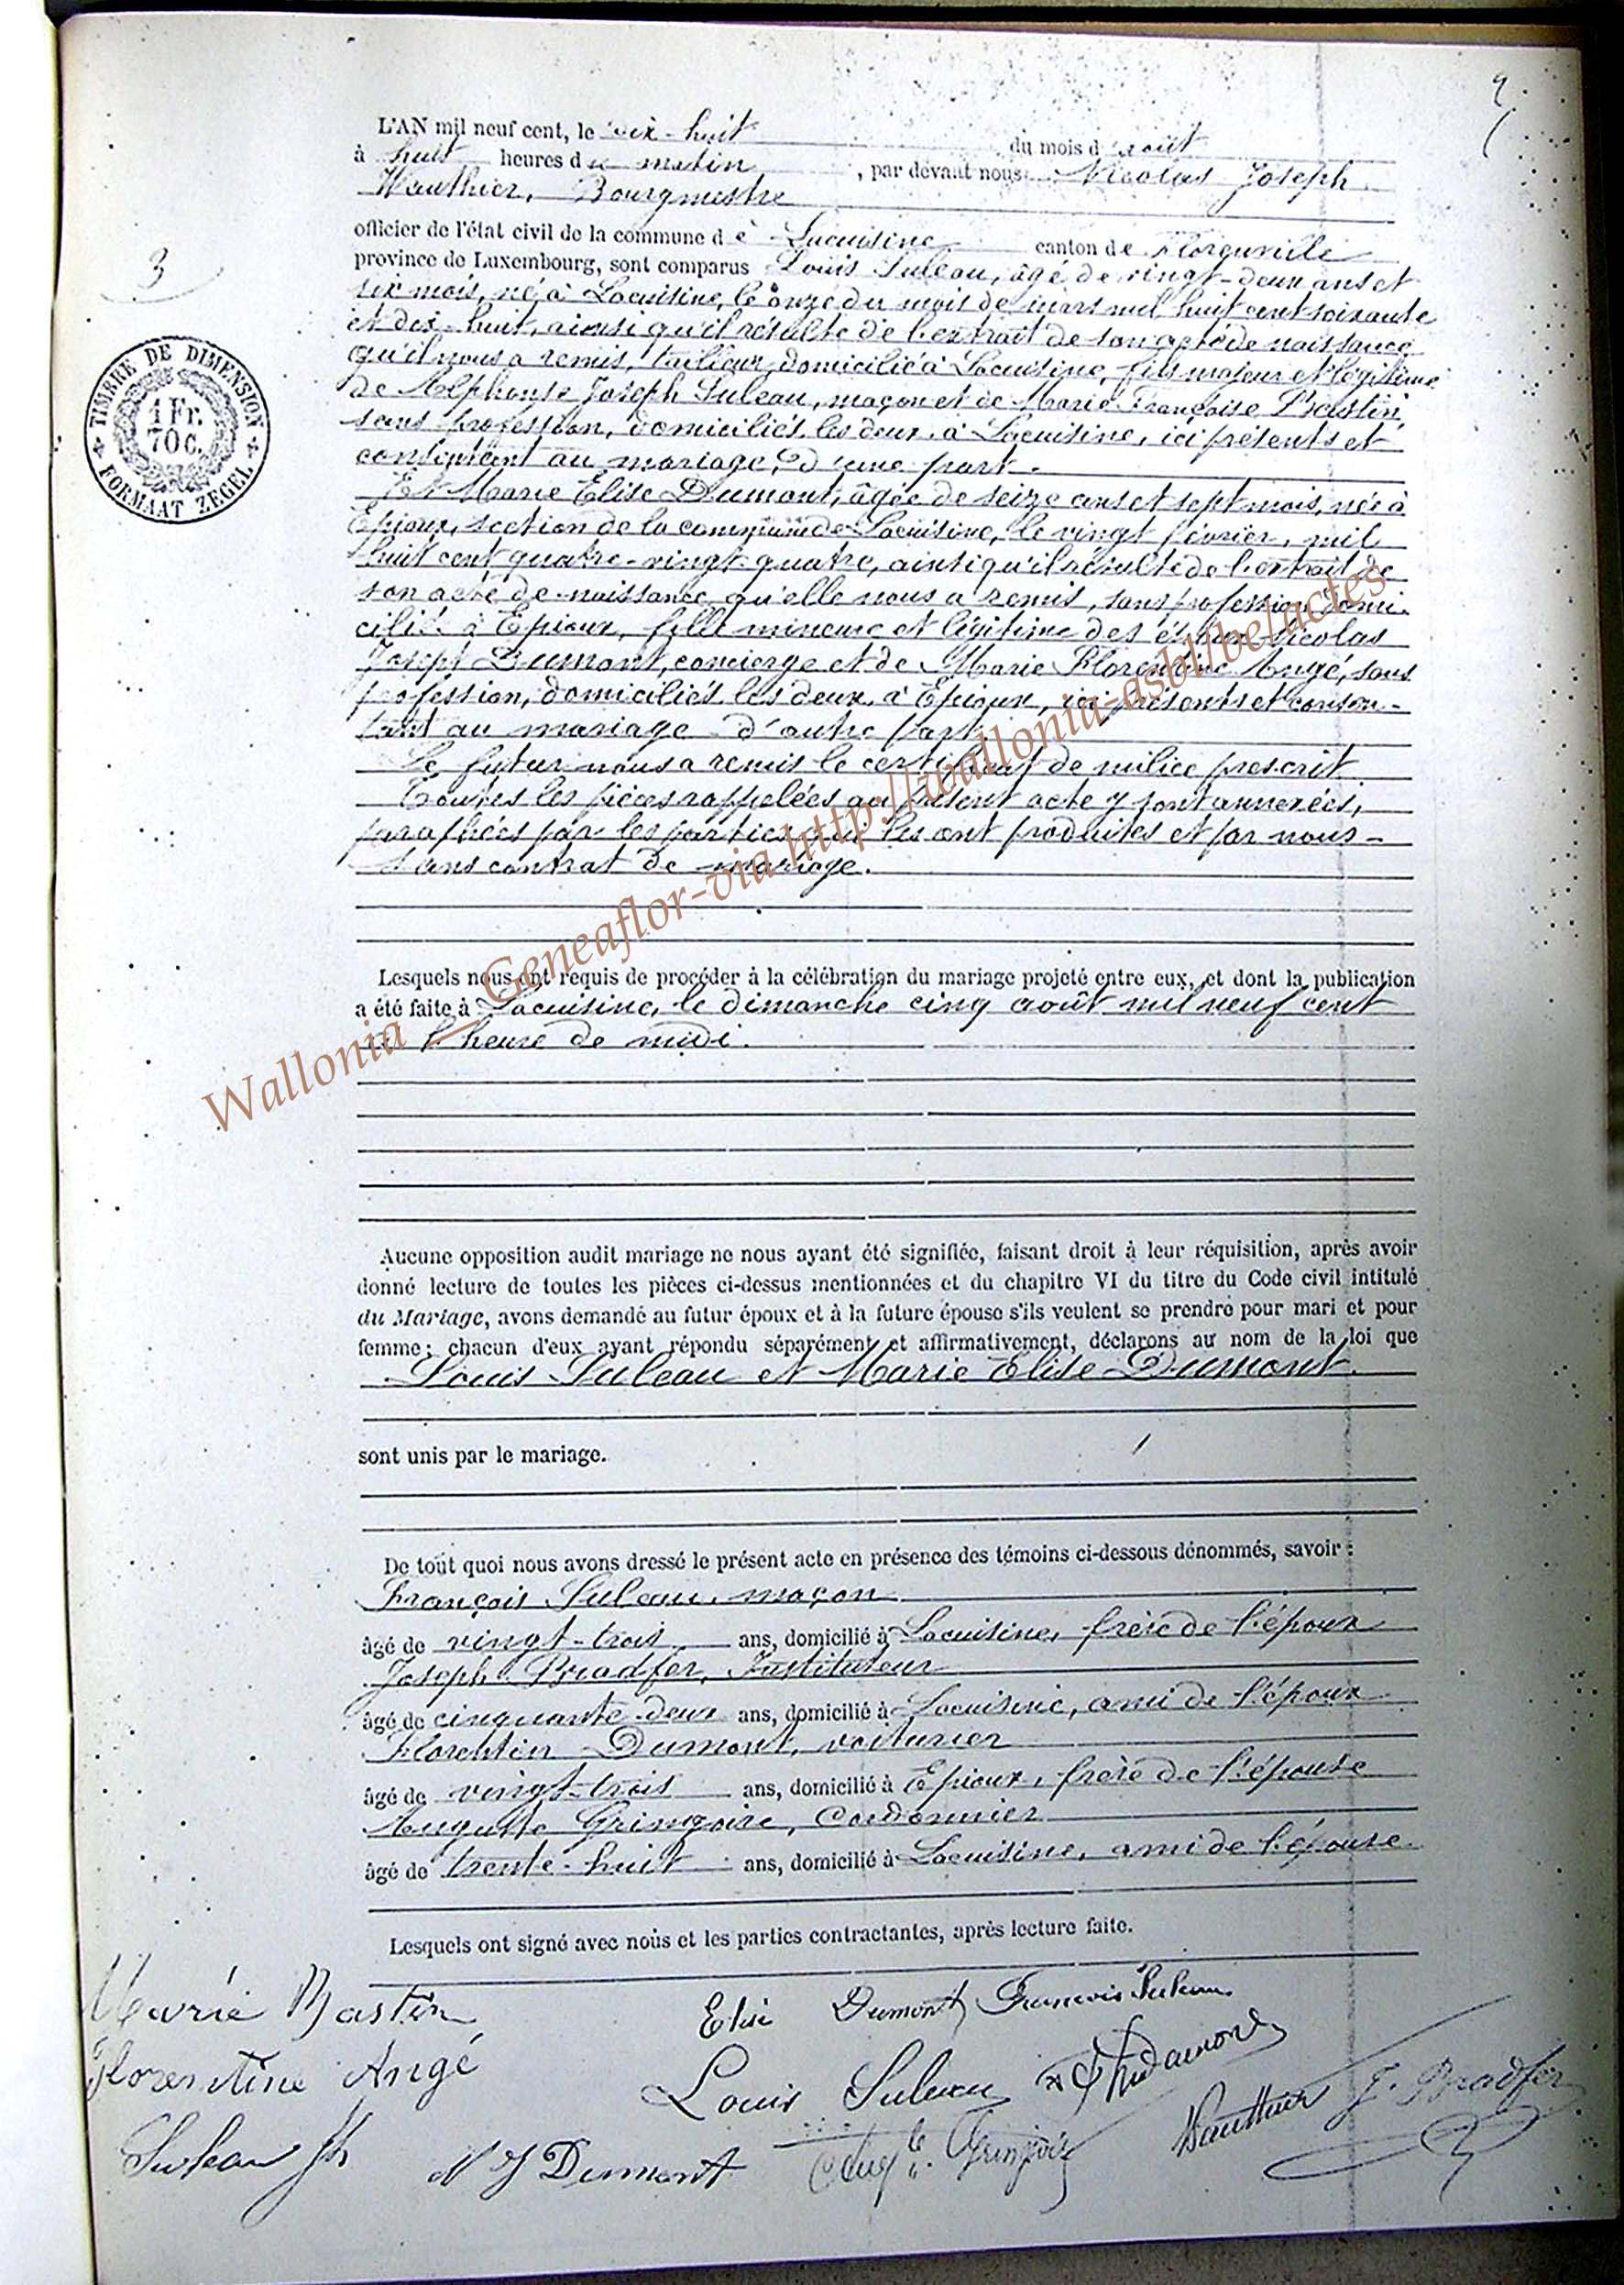 L'AN mil neuf cent, le dix-huit du mois d'août
à huit heures du matin, par devant nous Nicolas Joseph
Wauthier, Bourgmestre
officier de l'état civil de la commune de Lacuisine canton de Florenville
province de Luxembourg, sont comparus Louis Suleau, âgé de vingt-deux ans et
six mois, né à Lacuisine, le onze du mois de mars mil huit cent soixante
et dix-huit, ainsi qu'il résulte de l'extrait de son acte de naissance
qu'il nous a remis, tailleur, domicilié à Lacuisine, fils majeur et légitime
de Alphonse Joseph Suleau, maçon et de Marie Françoise Bastin,
sans profession, domiciliés les deux à Lacuisine, ici présents et
consentant au mariage, d'une part.
Et Marie Elise Dumont, âgée de seize ans et sept mois, née à
Epioux, section de la commune de Lacuisine, le vingt février, mil
huit cent quatre-vingt-quatre, ainsi qu'il résulte de l'extrait de
son acte de naissance qu'elle nous a remis, sans profession domi-
ciliée à Epioux, fille mineure et légitime des époux Nicolas
Joseph Dumont, concierge et de Marie Florentine Angé, sans
profession, domiciliés les deux à Epioux, ici présents et consen-
tant au mariage d'autre part.
Le futur nous a remis le certificat de milice prescrit
Toutes les pièces rappelées au présent acte y sont annexées,
paraphées par les parties qui les ont produites et par nous-
Sans contrat de mariage.
Lesquels nous ont requis de procéder à la célébration du mariage projeté entre eux, et dont la publication
a été faite à Lacuisine, le dimanche cinq août mil neuf cent
à l'heure de midi.
Aucune opposition audit mariage ne nous ayant été signifiée, faisant droit à leur réquisition, après avoir
donné lecture de toutes les pièces ci-dessus mentionnées et du chapitre VI du titre du Code civil intitulé
du Mariage, avons demandé au futur époux et à la future épouse s'ils veulent se prendre pour mari et pour
femme; chacun d'eux ayant répondu séparément et affirmativement, déclarons au nom de la loi que
Louis Suleau et Marie Elise Dumont
sont unis par le mariage.
De tout quoi nous avons dressé le présent acte en présence des témoins ci-dessous dénommés, savoir :
François Suleau, maçon
âgé de vingt-trois ans, domicilié à Lacuisine, frère de l'époux
Joseph Bradfer, Instituteur
âgé de cinquante-deux ans, domicilié à Lacuisine, ami de l'époux
Florentin Dumont, voiturier
âgé de vingt-trois ans, domicilié à Epioux, frère de l'épouse
Auguste Gringoire, Cordonnier
âgé de trente-huit ans, domicilié à Lacuisine, ami de l'épouse.
Lesquels ont signé avec nous et les parties contractantes, après lecture faite.
Marie Bastin
Elise Dumont François Suleau
Florentine Angé
Louis Suleau
Wauthier J. Bradfer
Suleau Jh N J Dumont
3
TIMBRE DE DIMENSION
1 Fr.
70 C.
FORMAAT ZEGEL
Wallonia _ Geneaflor-via http://wallonia-asbl/be/actes